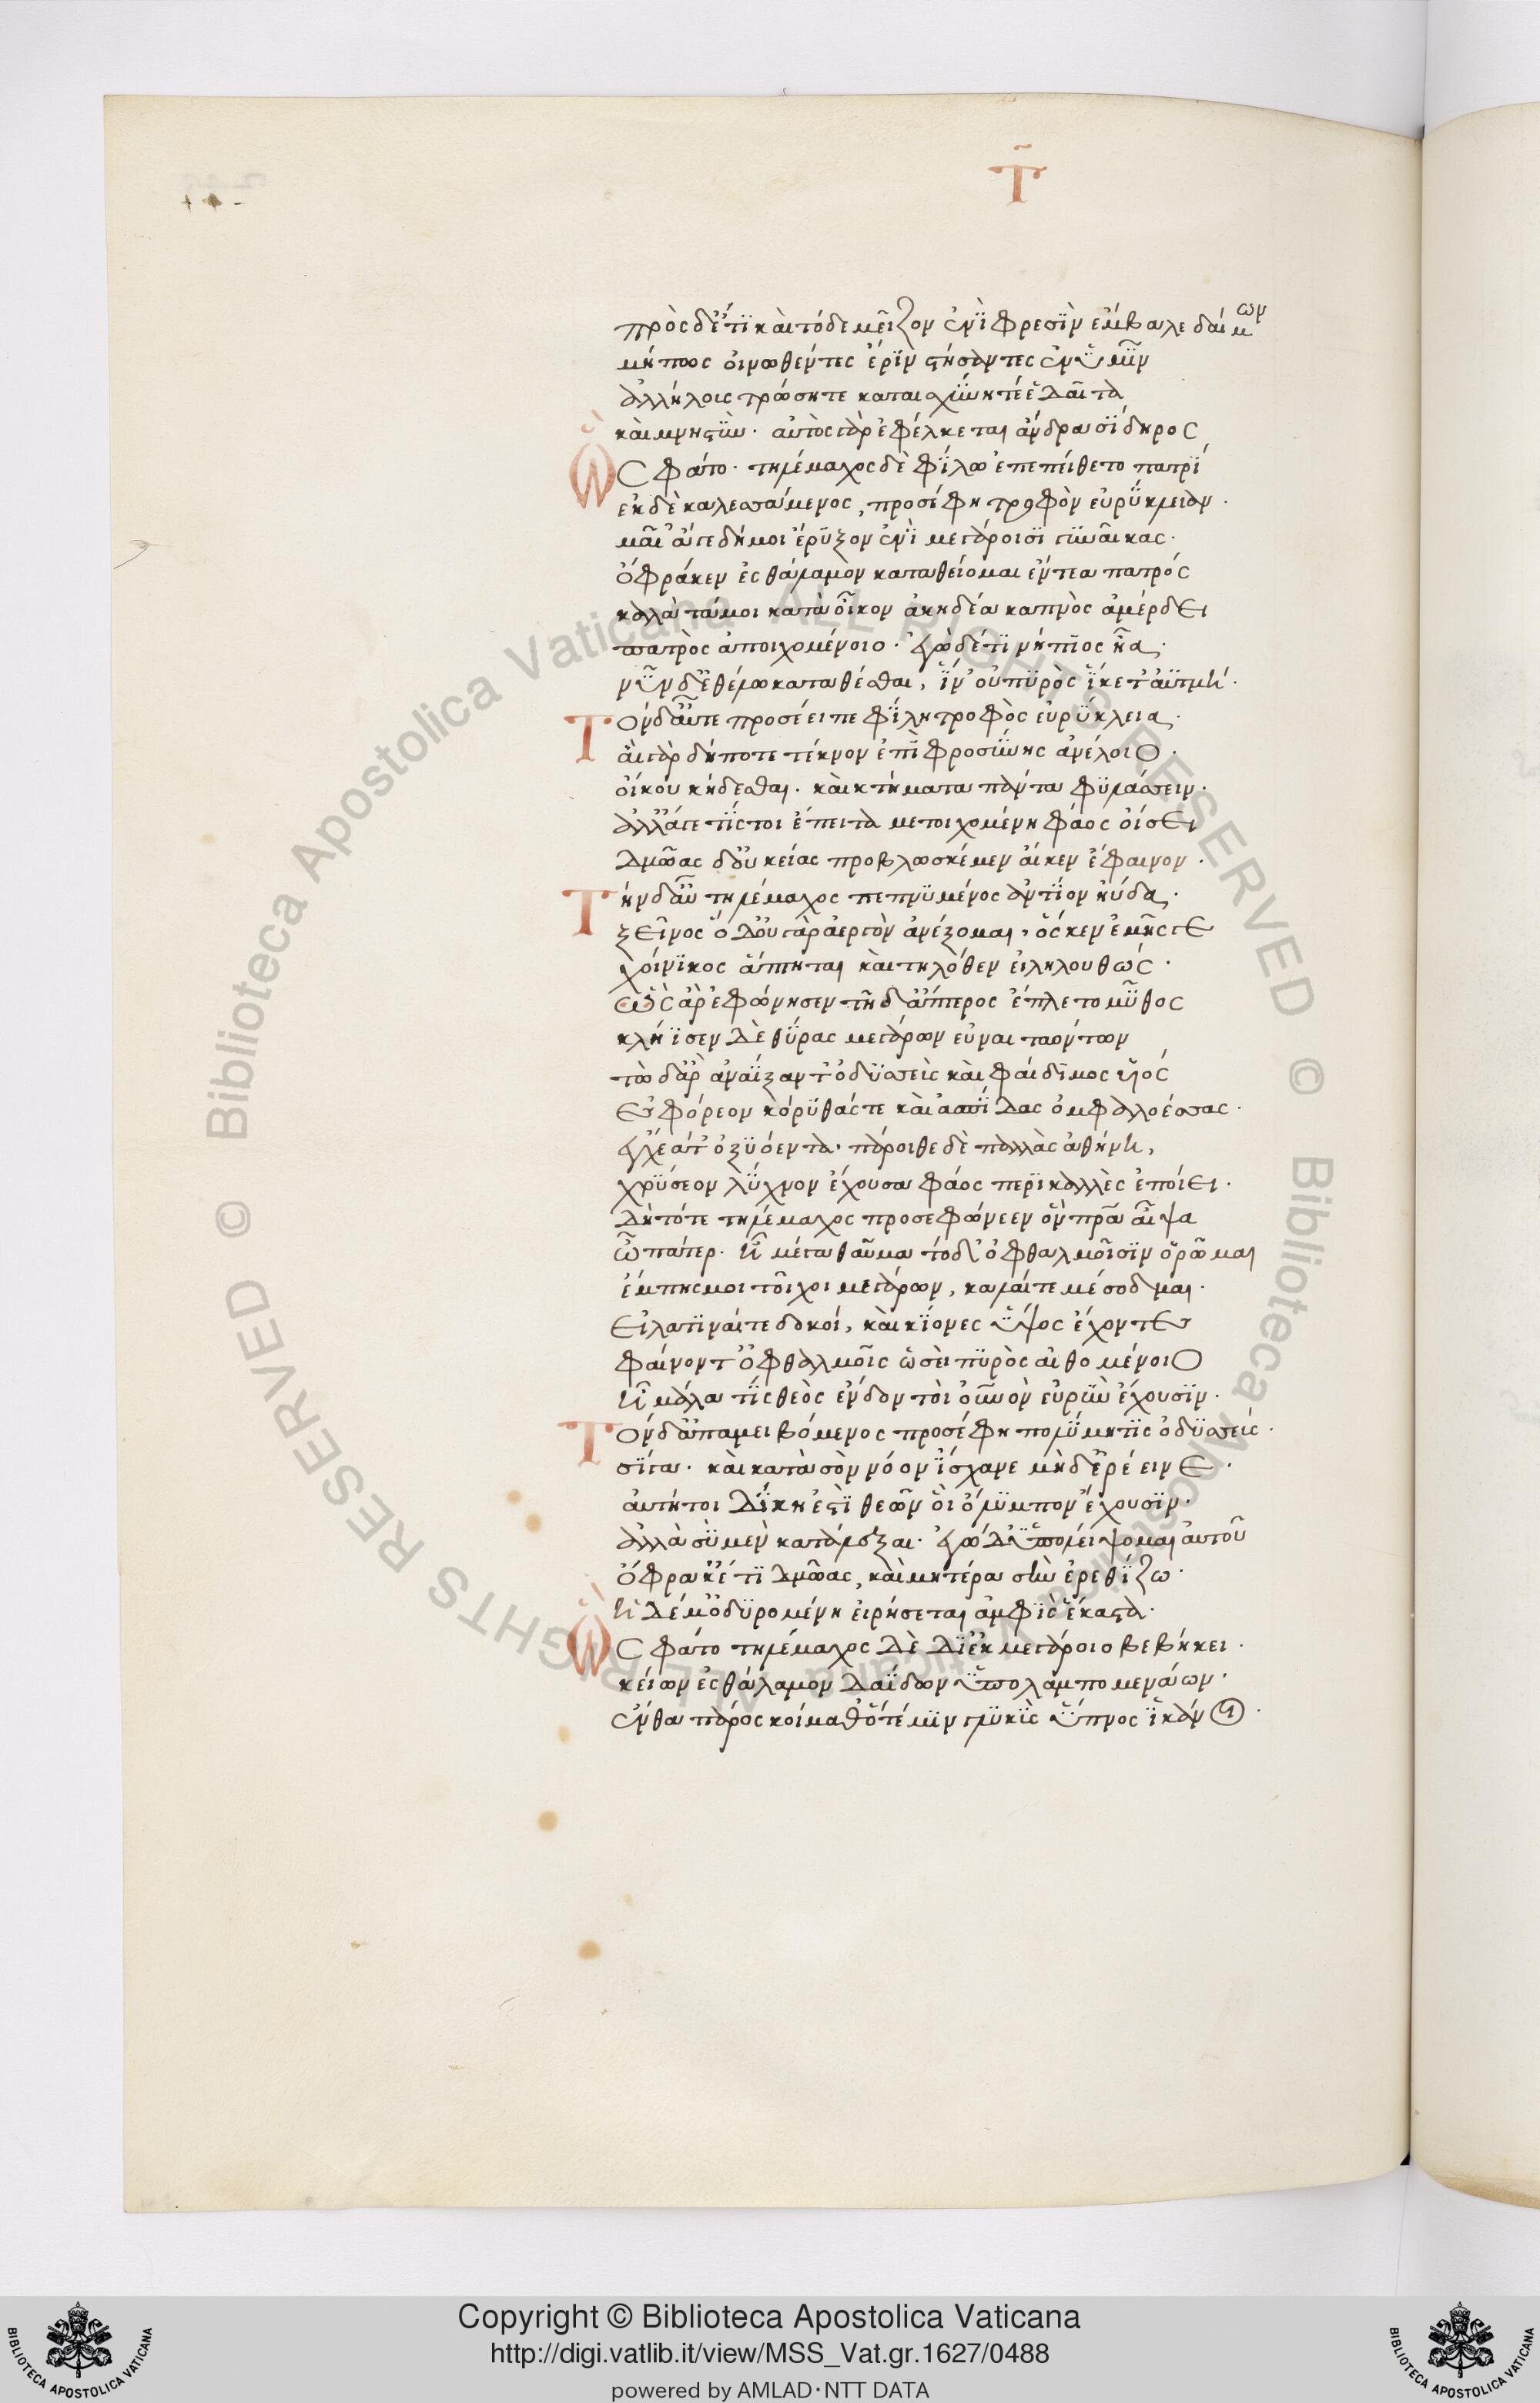 Τ̃
πρὸς δέ τϊ καὶ τόδε μεῖζον ἐνὶ φρεσὶν ἔμβαλε δαίμων
μήπως οἰνωθέντες ἔριν στήσαντες ἐν ὑμῖν
ἀλλήλοις τρώσητε καταισχύνητέ τε δαῖτα
καὶ μνηστὺν· αὐτὸς γὰρ ἐφέλκεται ἄνδρα σίδηρος
Ὣς φάτο· τηλέμαχος δὲ φίλω ἐπεπείθετο πατρί
ἐκ δὲ καλεσσάμενος, προσέφη τροφὸν εὐρύκλειαν·
μαῖ' ἄγε δή μοι ἔρυξον ἐνὶ μεγάροισι γυναῖκας·
ὄφρα κεν ἐς θάλαμον καταθείομαι ἔντεα πατρός
καλὰ τά μοι κατὰ οἶκον ἀκηδέα καπνὸς ἀμέρδει
πατρὸς ἀποιχομένοιο· ἐγὼ δέ τι νήπιος ἦα·
νῦν δ' ἐθέλω καταθέσθαι, ἵν' οὐ πυρὸς ἵκετ' ἀϋτμή·
Τὸν δ' αὖτε προσέειπε φίλη τροφὸς εὐρύκλεια·
αἲ γὰρ δήποτε τέκνον ἐπιφροσύνης ἀνέλοιο·
οἴκου κήδεσθαι· καὶ κτήματα πάντα φυλάσσειν·
ἀλλ' ἄγε τίς τοι ἔπειτα μετοιχομένη φάος οἴσει
δμωὰς δ' οὐκ εἴας προβλωσκέμεν αἵ κεν ἔφαινον·
Τὴν δ' αὖ τηλέμαχος πεπνυμένος ἀντίον ηὔδα·
ξεῖνος ὅδ' οὐ γὰρ ἀεργὸν ἀνέξομαι, ὅς κεν ἐμῆς γε
χοίνικος ἅπτηται καὶ τηλόθεν εἰληλουθώς·
ὣς ἂρ ἐφώνησεν τῆ δ' ἄπτερος ἔπλετο μῦθος
κλήϊσεν δὲ θύρας μεγάρων εὐναιταόντων
τὼ δ' ἂρ ἀναΐξαντ' ὀδυσσεὺς καὶ φαίδιμος υἱός
ἐσφόρεον κόρυθάς τε καὶ ἀσπίδας ὀμφαλοέσσας·
ἔγχεά τ' ὀξυόεντα· πάροιθε δὲ παλλὰς ἀθήνη,
χρύσεον λύχνον ἔχουσα φάος περικαλλὲς ἐποίει·
δὴ τότε τηλέμαχος προσεφώνεεν ὃν πρα αἶψα
ὦ πάτερ· ἦ μέγα θαῦμα τόδ' ὀφθαλμοῖσιν ὁρῶμαι
ἔμπης μοι τοῖχοι μεγάρων, καλαί τε μεσόδμαι·
εἰλατιναί τε δοκοί, καὶ κίονες ὑψόσ' ἔχοντες
φαίνοντ' ὀφθαλμοῖς ὡσεὶ πυρὸς αἰθομένοιο
ἦ μάλα τίς θεὸς ἔνδον τοὶ οὐνὸν εὐρὺν ἔχουσιν·
Τὸν δ' ἀπαμειβόμενος προσέφη πολύμητις ὀδυσσεύς·
σίγα· καὶ κατὰ σὸν νόον ἴσχανε μὴδ' ἐρέεινε·
αὕτη τοι δίκη ἐστὶ θεῶν οἳ ὄλυμπον ἔχουσιν·
ἀλλὰ σὺ μὲν κατάλεξαι· ἐγὼ δ' ὑπολείψομαι αὐτοῦ
ὄφρα κ' ἔτι δμωάς, καὶ μητέρα σὴν ἐρεθίζω·
ἡ δέ μ' ὀδυρομένη εἰρήσεται ἀμφὶς ἕκαστα·
Ὣς φάτο τηλέμαχος δὲ δϊὲκ μεγάροιο βεβήκει·
κείων ἐς θάλαμον δαΐδων ὕπο λαμπομενάων·
ἔνθα πάρος κοιμᾶθ' ὅτέ μιν γλυκὺς ὕπνος ἱκάνοι·
Copyright © Biblioteca Apostolica Vaticana
http://digi.vatlib.it/view/MSS_Vat.gr.1627/0488
powered by AMLAD·NTT DATA
BIBLIOTECA APOSTOLICA VATICANA
BIBLIOTECA APOSTOLICA VATICANA
© Biblioteca Apostolica Vaticana ALL RIGHTS RESERVED
© Biblioteca Apostolica Vaticana ALL RIGHTS RESERVED